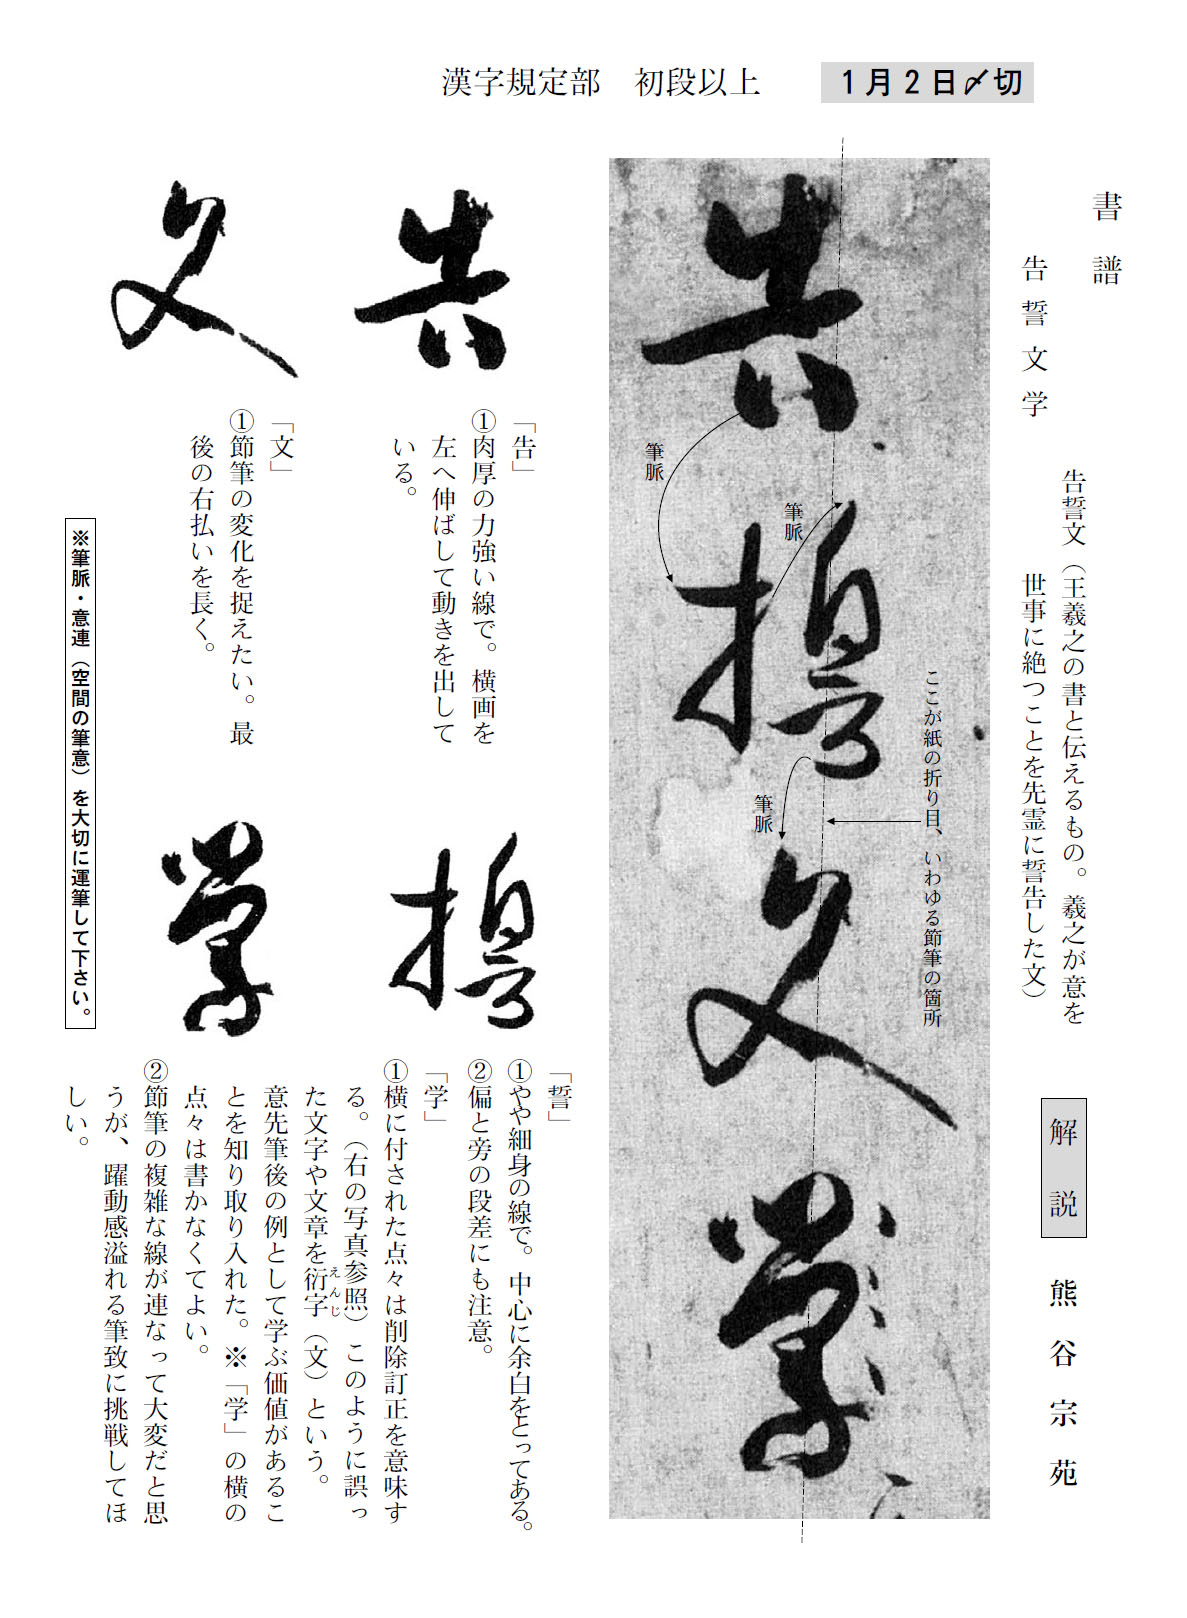 漢字規定部　初段以上
1月2日〆切
書譜
告誓文学
告誓文（王羲之の書と伝えるもの。羲之が意を
世事に絶つことを先霊に誓告した文）
解説
熊谷宗苑
告誓文学
筆脈
筆脈
筆脈
ここが紙の折り目、いわゆる節筆の箇所
告
「告」
①肉厚の力強い線で。横画を
左へ伸ばして動きを出して
いる。
文
「文」
①節筆の変化を捉えたい。最
後の右払いを長く。
誓
「誓」
①やや細身の線で。中心に余白をとってある。
②偏と旁の段差にも注意。
学
「学」
①横に付された点々は削除訂正を意味す
る。（右の写真参照）このように誤っ
た文字や文章を衍字（文）という。
えんじ
意先筆後の例として学ぶ価値があるこ
とを知り取り入れた。※「学」の横の
点々は書かなくてよい。
②節筆の複雑な線が連なって大変だと思
うが、躍動感溢れる筆致に挑戦してほ
しい。
※筆脈・意連（空間の筆意）を大切に運筆して下さい。